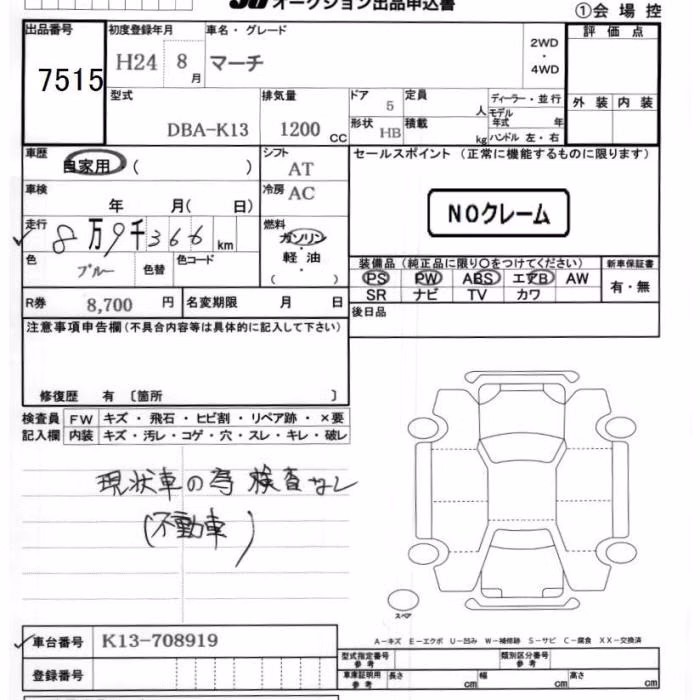 オークション出品申込書
①会場控
出品番号 初度登録年月 車名・グレード 評価点
7515 H24 8月 マーチ 2WD・4WD
型式 排気量 ドア 5 定員 人 ディーラー・並行 外装 内装
DBA-K13 1200CC 形状 HB 積載 kg モデル年式 年 ハンドル 左・右
車歴 自家用 ( ) シフト AT セールスポイント (正常に機能するものに限ります)
車検 年 月( 日) 冷房 AC NOクレーム
走行 8万9千366 km 燃料 ガソリン・軽油 ( )
色 ブルー 色替 色コード
装備品(純正品に限り〇をつけてください) 新車保証書
PS PW ABS エアB AW 有・無
SR ナビ TV カワ
R券 8,700円 名変期限 月 日 後日品
注意事項申告欄(不具合内容等は具体的に記入して下さい)
修復歴 有 〔箇所 〕
検査員 FW キズ・飛石・ヒビ割・リペア跡・×要
記入欄 内装 キズ・汚レ・コゲ・穴・スレ・キレ・破レ
現状車の為 検査なし
(不動車)
スペア
A−キズ E−エクボ U−凹み W−補修跡 S−サビ C−腐食 XX−交換済
車台番号 K13-708919
型式指定番号 参考 類別区分番号 参考
登録番号 車庫証明用 参考 長さ cm 幅 cm 高さ cm